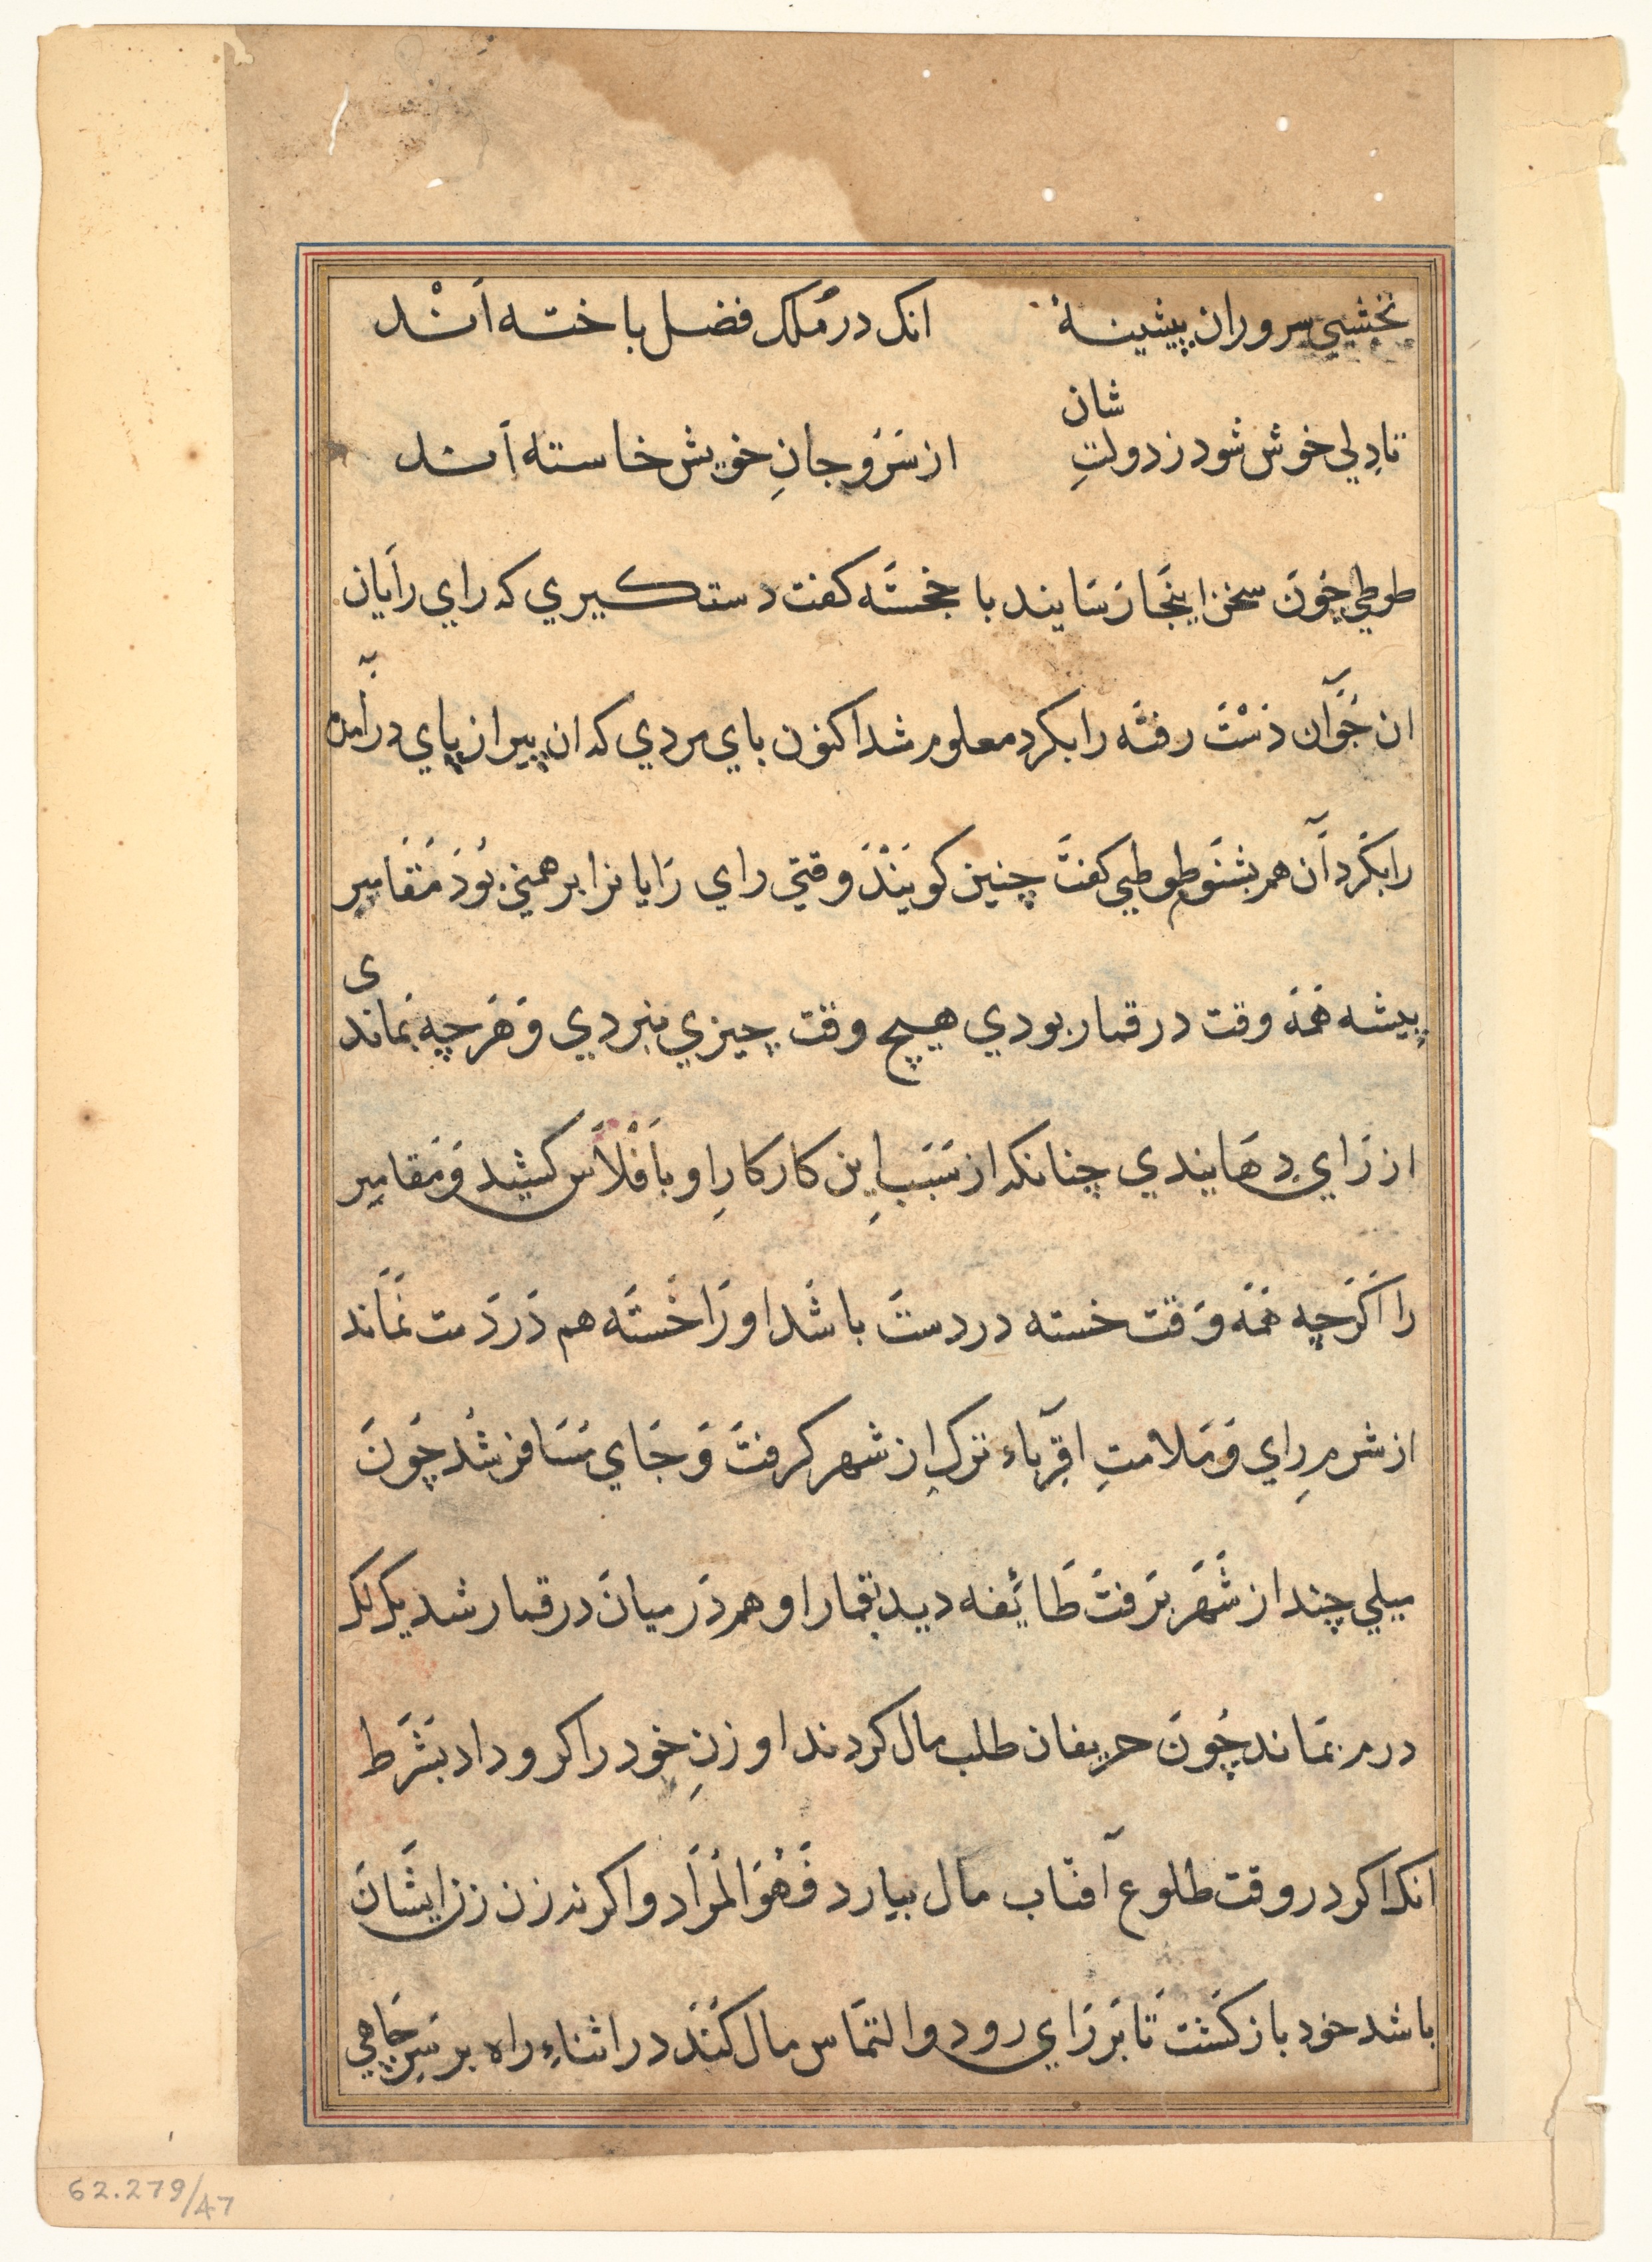 نخشبي سروران پیشینهٔ انک در ملک فضل باخته اَنْد
تا دِلي خوش شود ز دولتِ شان از سَرَو جانِ خویش خاسته اَند
طوطي چوَنَ سخن اینجَا رَسَایند با خجستَه کفت دستکیري که راي رَایان
ان جَوَان دَسْتَ رفتَه را بکرد معلوم شد اکنون باي مردي که ان پیر از پاي در آمده
را بکَرد اَن هم بشنَو طوطي کفتَ چنین کویَنْدَ وقتي راي رَایانرا برهمني بُودَ مُقَامِر
پیشه هَمَه وقت در قمار بودي هیچ وقت چیزي نبردي وَ هَرچه بَماندی
از رَاي دِهَایندي چنانکه از سَبَبِ این کار کارِ او باَفْلاَس کشید وَ مُقامِر
را اَکَرچه هَمَه وَقت خسته در دستَ باشَد او رَا خَستَه هم دَر دَست نَمَاند
از شرمِ راي وَ مَلامتِ اقرباء ترکِ از شهر کرفتَ وَ جَاي مُسَافر شُد چَونَ
میلي چند از شَهَر بَرفتَ طَائفه دید بقمار او هم دَر میانَ در قمار شد یک لک
درم بمَاند چُونَ حریفان طلب مال کردند او زنِ خود را کرو داد بشَرط
انکه اکر در وقت طلوع آفتاب مَال بیارد فَهُوَ المُرَاد و اکر نه زن زن ایشَانَ
باشد خود باز کَشت تَا بَر رَاي رود و التمَاس مال کُنَد در اثناءِ راه بر سَرِ چَاهي
62.279/47